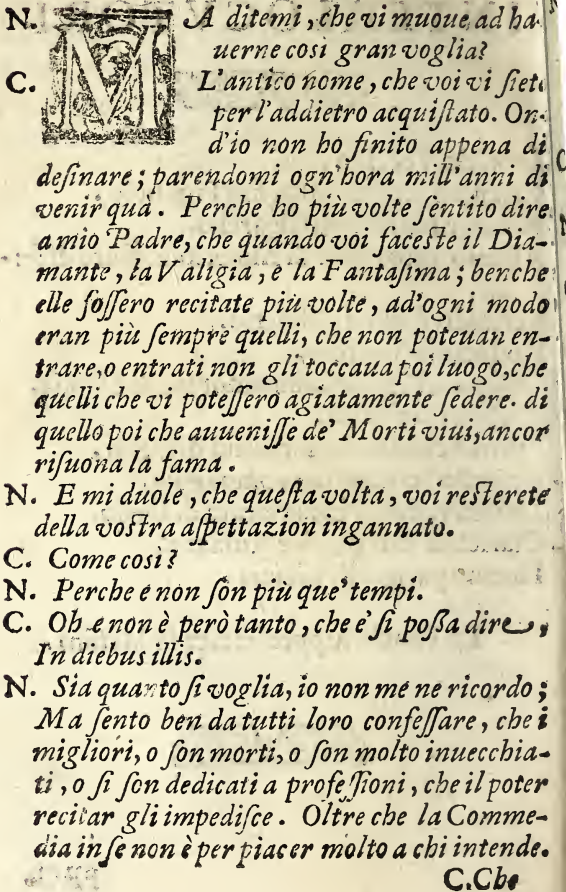 N. MA ditemi, che vi muoue ad ha-
uerne cosi gran voglia?
C. L'antico nome, che voi vi siete
per l'addietro acquistato. On-
d'io non ho finito appena di
desinare; parendomi ogn'hora mill'anni di
venir quà. Perche ho più volte sentito dire
a mio Padre, che quando voi faceste il Dia-
mante, la Valigia, e la Fantasima; benche
elle fossero recitate più volte, ad'ogni modo
eran più sempre quelli, che non poteuan en-
trare, o entrati non gli toccaua poi luogo, che
quelli che vi potessero agiatamente sedere. di
quello poi che auuenisse de' Morti viui, ancor
risuona la fama.
N. E mi duole, che questa volta, voi resterete
della vostra aspettazion ingannato.
C. Come così?
N. Perche e non son più que' tempi.
C. Oh e non è però tanto, che e' si possa dire,
In diebus illis.
N. Sia quanto si voglia, io non me ne ricordo;
Ma sento ben da tutti loro confessare, che i
migliori, o son morti, o son molto inuecchia-
ti, o si son dedicati a professioni, che il poter
recitar gli impedisce. Oltre che la Comme-
dia in se non è per piacer molto a chi intende.
C. Che